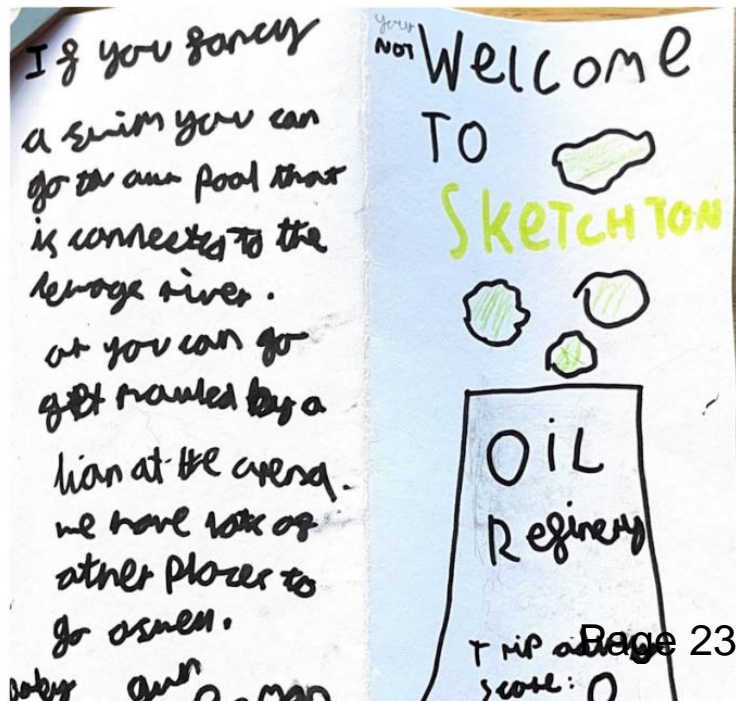 If you fancy
a swim you can
go to our pool that
is connected to the
sewage river.
or you can go
get mauled by a
lion at the arena.
we have lots of
other places to
go aswell.
baby gun
your
NOT Welcome
TO
SKETCHTON
OIL
Refinery
Trip
score: 0
Page 23